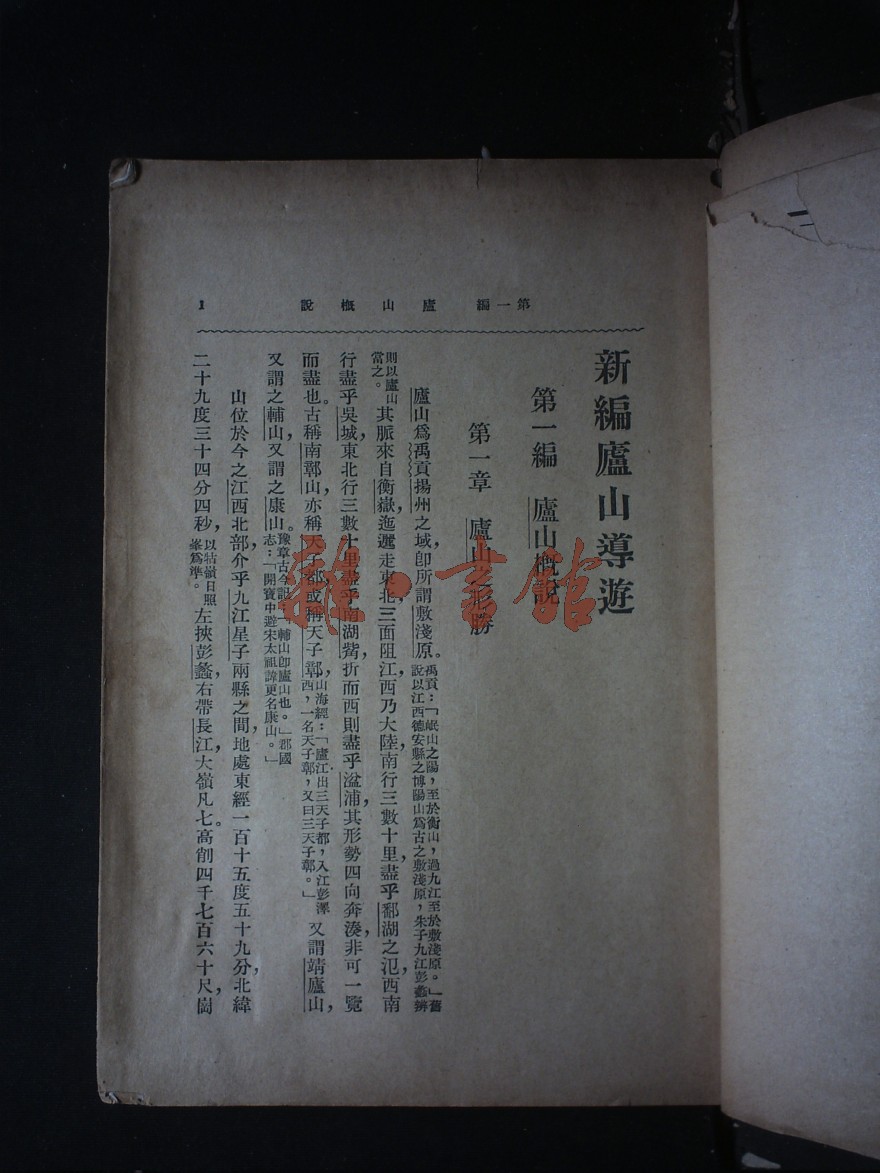 第一編　廬山概說　1
新編廬山導遊
第一編　廬山概說
第一章　廬山形勝
廬山爲禹貢揚州之域，卽所謂敷淺原。禹貢：「岷山之陽，至於衡山，過九江至於敷淺原。」舊
說以江西德安縣之博陽山爲古之敷淺原，朱子九江彭蠡辨
則以廬山
當之。其脈來自衡嶽，迤邐走東北，三面阻江，西乃大陸，南行三數十里，盡乎鄱湖之氾，西南
行盡乎吳城，東北行三數十里盡乎南湖觜，折而西則盡乎湓浦，其形勢四向奔湊，非可一覽
而盡也。古稱南鄣山，亦稱天子都，或稱天子鄣，山海經：「廬江出三天子都，入江彭澤
西，一名天子鄣，又曰三天子鄣。」又謂靖廬山，
又謂之輔山，又謂之康山。豫章古今記：「輔山卽廬山也。」郡國
志：「開寶中避宋太祖諱更名康山。」
山位於今之江西北部，介乎九江星子兩縣之間，地處東經一百十五度五十九分，北緯
二十九度三十四分四秒，以牯嶺日照
峯爲準。左挾彭蠡，右帶長江，大嶺凡七。高削四千七百六十尺，崗
雜·書館